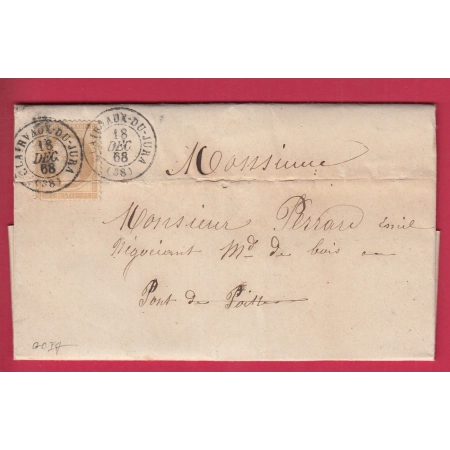 CLAIRVAUX-DU-JURA
18
DEC
68
(38)
CLAIRVAUX-DU-JURA
18
DEC
68
(38)
Monsieur
Monsieur Perrard Emile
Négociant Md de bois a
Pont de Poitte